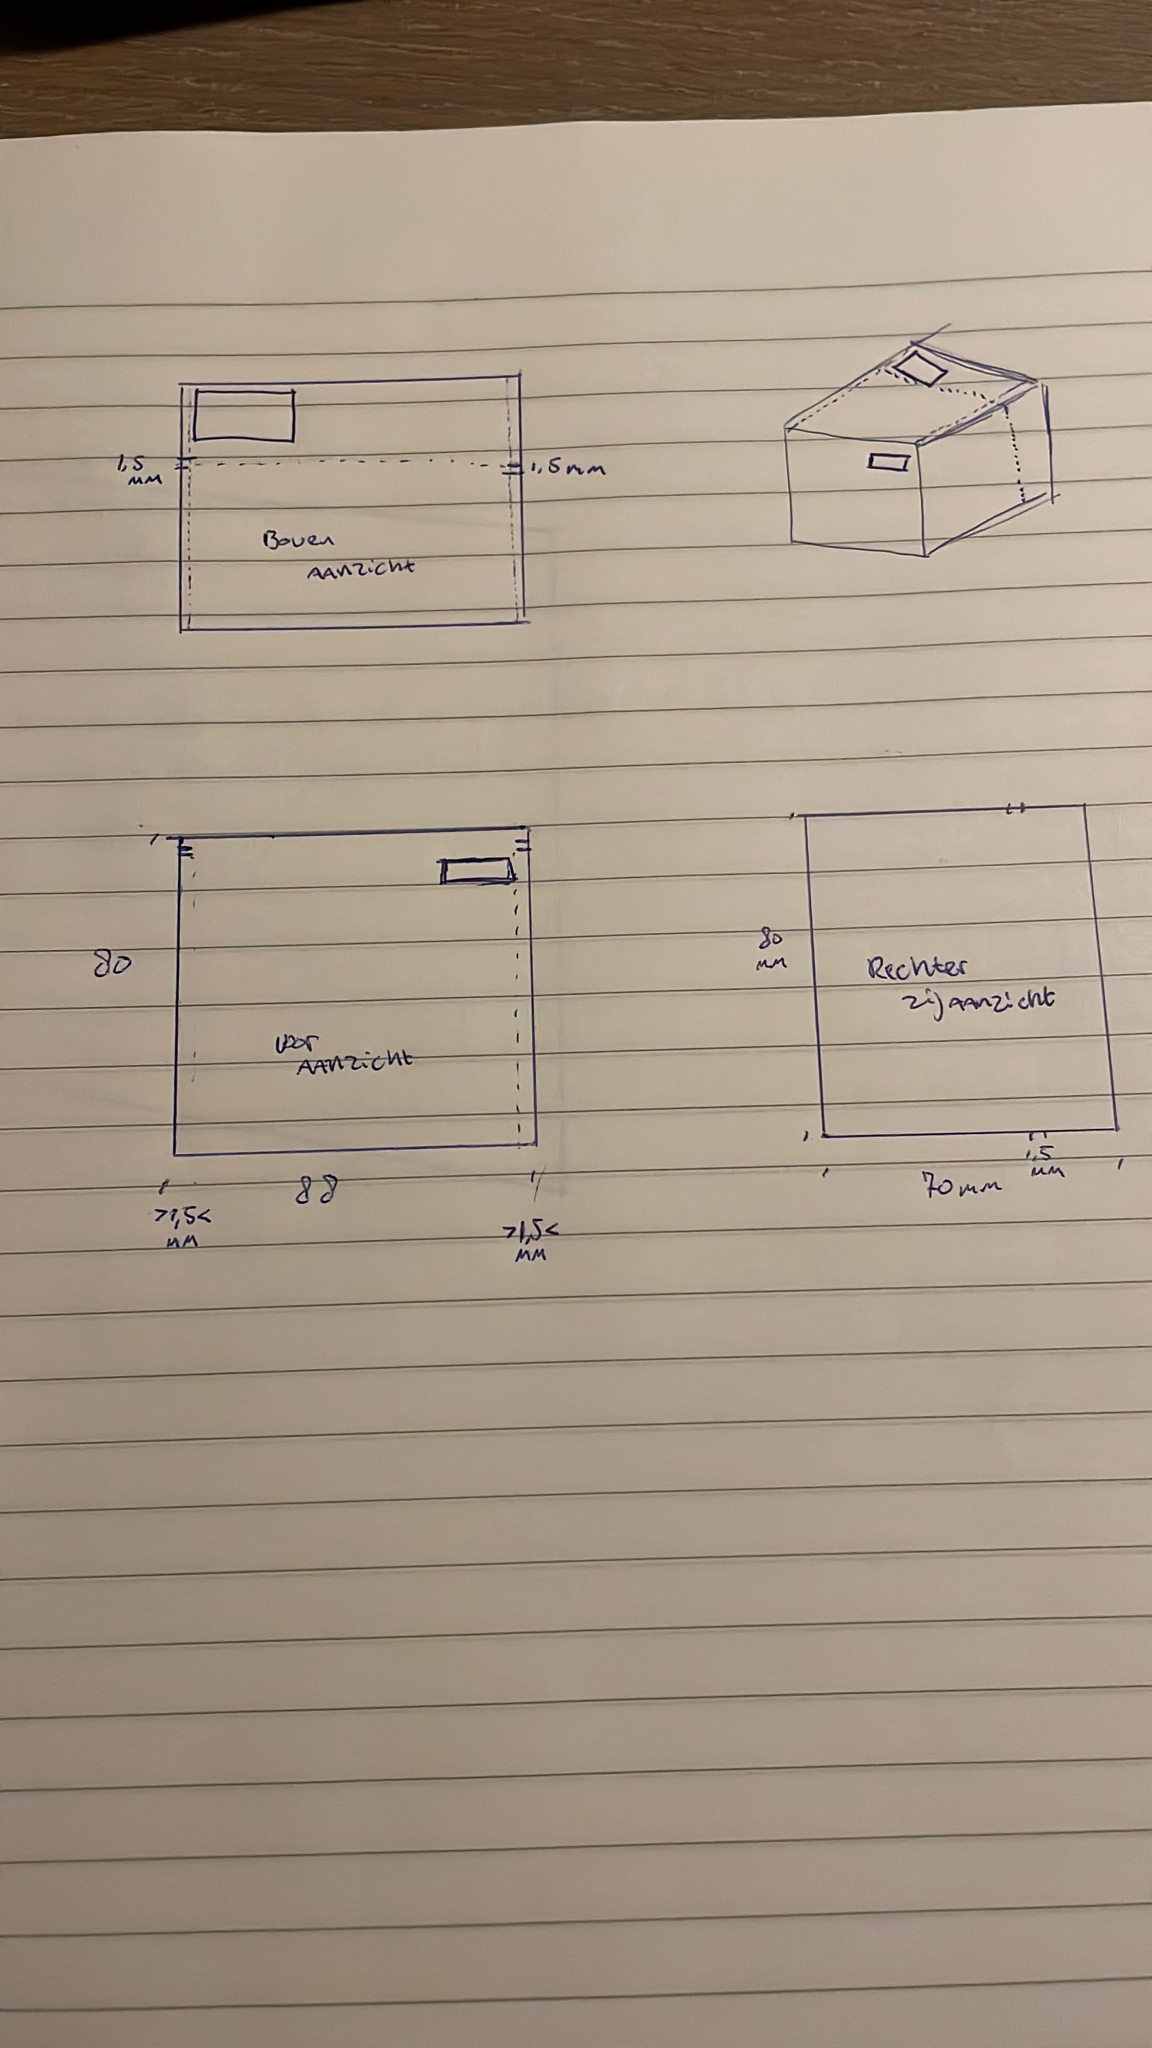 1,5
MM
1,5 MM
Boven
AANZICHT
80
VOOR
AANZICHT
88
>1,5<
MM
>1,5<
MM
80
MM
Rechter
zijAANZICHT
1,5
MM
70 MM